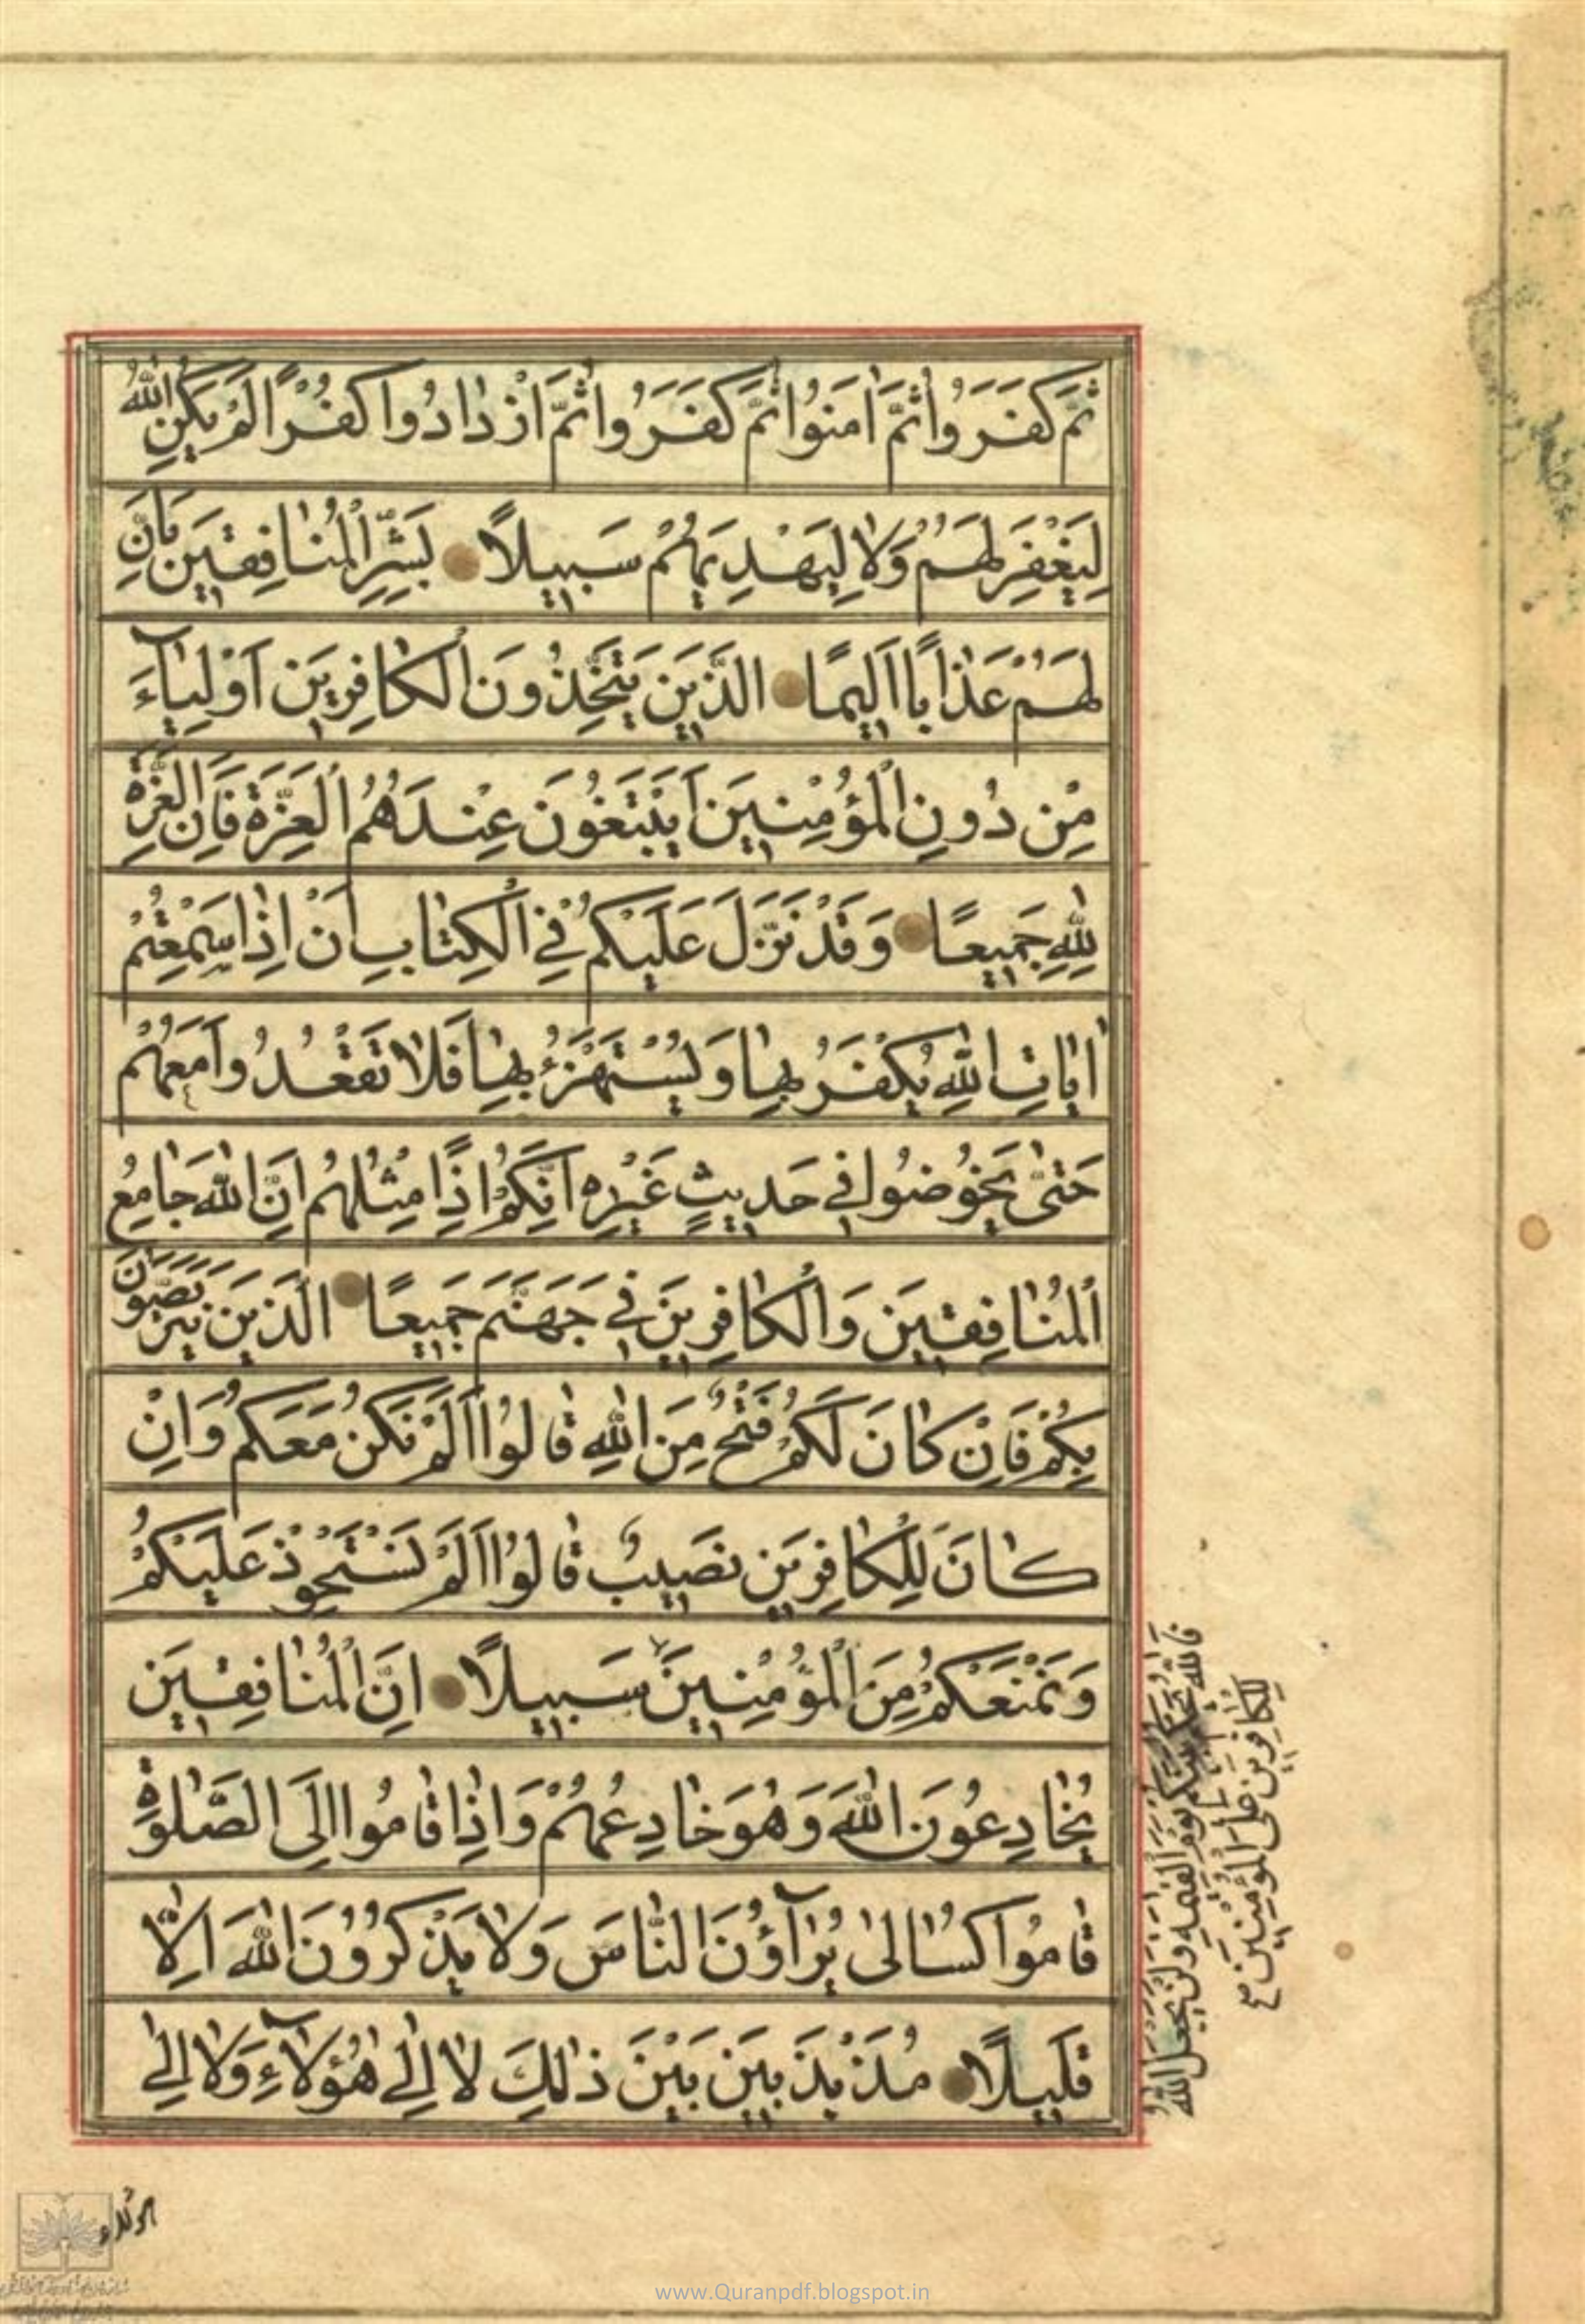 ثُمَّ كَفَرُوا ثُمَّ اٰمَنُوا ثُمَّ كَفَرُوا ثُمَّ ازْدٰادُوا كُفْرًا لَمْ يَكُنِ اللّٰهُ
لِيَغْفِرَ لَهُمْ وَلٰا لِيَهْدِيَهُمْ سَبِيلًا بَشِّرِ الْمُنٰافِقِينَ بِاَنَّ
لَهُمْ عَذٰابًا اَلِيمًا الَّذِينَ يَتَّخِذُونَ الْكٰافِرِينَ اَوْلِيٰآءَ
مِنْ دُونِ الْمُؤْمِنِينَ اَيَبْتَغُونَ عِنْدَهُمُ الْعِزَّةَ فَاِنَّ الْعِزَّةَ
لِلّٰهِ جَمِيعًا وَقَدْ نَزَّلَ عَلَيْكُمْ فِي الْكِتٰابِ اَنْ اِذٰا سَمِعْتُمْ
اٰيٰاتِ اللّٰهِ يُكْفَرُ بِهٰا وَيُسْتَهْزَءُ بِهٰا فَلٰا تَقْعُدُوا مَعَهُمْ
حَتّٰى يَخُوضُوا فِي حَدِيثٍ غَيْرِهِ اِنَّكُمْ اِذًا مِثْلُهُمْ اِنَّ اللّٰهَ جٰامِعُ
الْمُنٰافِقِينَ وَالْكٰافِرِينَ فِي جَهَنَّمَ جَمِيعًا الَّذِينَ يَتَرَبَّصُونَ
بِكُمْ فَاِنْ كٰانَ لَكُمْ فَتْحٌ مِنَ اللّٰهِ قٰالُوا اَلَمْ نَكُنْ مَعَكُمْ وَاِنْ
كٰانَ لِلْكٰافِرِينَ نَصِيبٌ قٰالُوا اَلَمْ نَسْتَحْوِذْ عَلَيْكُمْ
وَنَمْنَعْكُمْ مِنَ الْمُؤْمِنِينَ سَبِيلًا اِنَّ الْمُنٰافِقِينَ
يُخٰادِعُونَ اللّٰهَ وَهُوَ خٰادِعُهُمْ وَاِذٰا قٰامُوا اِلَى الصَّلٰوةِ
قٰامُوا كُسٰالىٰ يُرٰآؤُنَ النّٰاسَ وَلٰا يَذْكُرُونَ اللّٰهَ اِلّٰا
قَلِيلًا مُذَبْذَبِينَ بَيْنَ ذٰلِكَ لٰا اِلىٰ هٰؤُلٰآءِ وَلٰا اِلىٰ
فَاللّٰهُ يَحْكُمُ بَيْنَكُمْ يَوْمَ الْقِيٰمَةِ وَلَنْ يَجْعَلَ اللّٰهُ
لِلْكٰافِرِينَ عَلَى الْمُؤْمِنِينَ
www.Quranpdf.blogspot.in